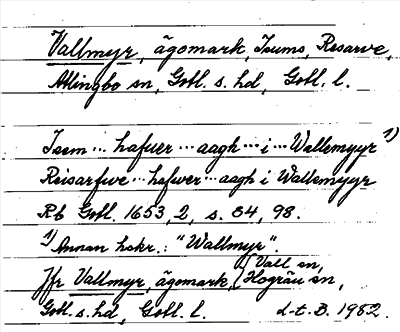 Vallmyr, ägomark, Isums, Resarve,
Atlingbo sn, Gotl. s. hd, Gotl. l.
Isem ... hafuer ... aagh ... i ... Wallemyyr 1)
Reisarfwe ... hafwer ... aagh i Wallemyyr
Rb Gotl. 1653, 2, s. 84, 98.
1) Annan hskr.: "Wallmyr".
Jfr Vallmyr, ägomark, Vall sn,
Hogrän sn,
Gotl. s. hd, Gotl. l. d-t. B. 1982.